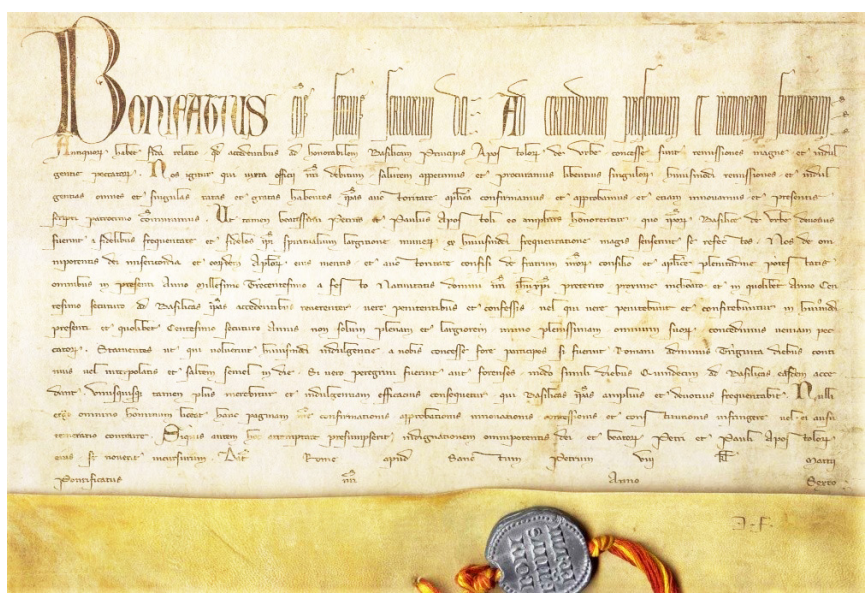 BONIFATIUS eps servus servorum dei Ad certitudinem presentium et memoriam futurorum
Antiquor habet fida relatio qd accedentibus ad honorabilem Basilicam Principis Apostolorum de Urbe concesse sunt remissiones magne et indul
gentie peccator. Nos igitur qui iuxta officii nri debitum salutem appetimus et procuramus libentius singulor huiusmodi remissiones et indul
gentias omnes et singulas ratas et gratas habentes ipas auctoritate aplica confirmamus et approbamus et etiam innovamus et presentis
scripti patrocinio comunimus. Ut tamen beatissimi Petrus et Paulus Apostoli eo amplius honorentur quo ipor Basilice de Urbe devotius
fuerint a fidelibus frequentate et fideles ipi spiritualium largitione muner ex huiusmodi frequentatione magis senserint se refectos. Nos de om
nipotentis dei misericordia et eordem Aplor eius meritis et auctoritate confisi de fratrum nror consilio et aplice plenitudine potestatis
omnibus in presenti Anno Millesimo Trecentesimo a festo Natiuitatis domini nri ihu xpi preterito proxime inchoato et in quolibet Anno Cen
tesimo secuturo ad Basilicas ipas accedentibus reverenter vere penitentibus et confessis vel qui vere penitebunt et confitebuntur in huiusmodi
presenti et quolibet Centesimo secuturo Annis non solum plenam et largiorem immo plenissimam omnium suor concedimus veniam pec
cator. Statuentes ut qui voluerint huiusmodi indulgentie a nobis concesse fore participes si fuerint Romani ad minus Triginta diebus conti
nuis vel interpolatis et saltem semel in die. Si vero peregrini fuerint aut forenses modo simili diebus Quindecim ad Basilicas easdem acce
dant. Unusquisque tamen plus merebitur et indulgentiam efficacius consequetur qui Basilicas ipas amplius et devotius frequentabit. Nulli
ergo omnino hominum liceat hanc paginam nre confirmationis approbationis innovationis concessionis et constitutionis infringere vel ei ausu
temerario contraire. Siquis autem hoc attemptare presumpserit indignationem omnipotentis dei et beator Petri et Pauli Apostolor
eius se noverit incursurum. Dat Rome apud Sanctum Petrum VIII kl Martii
Pontificatus nri Anno Sexto